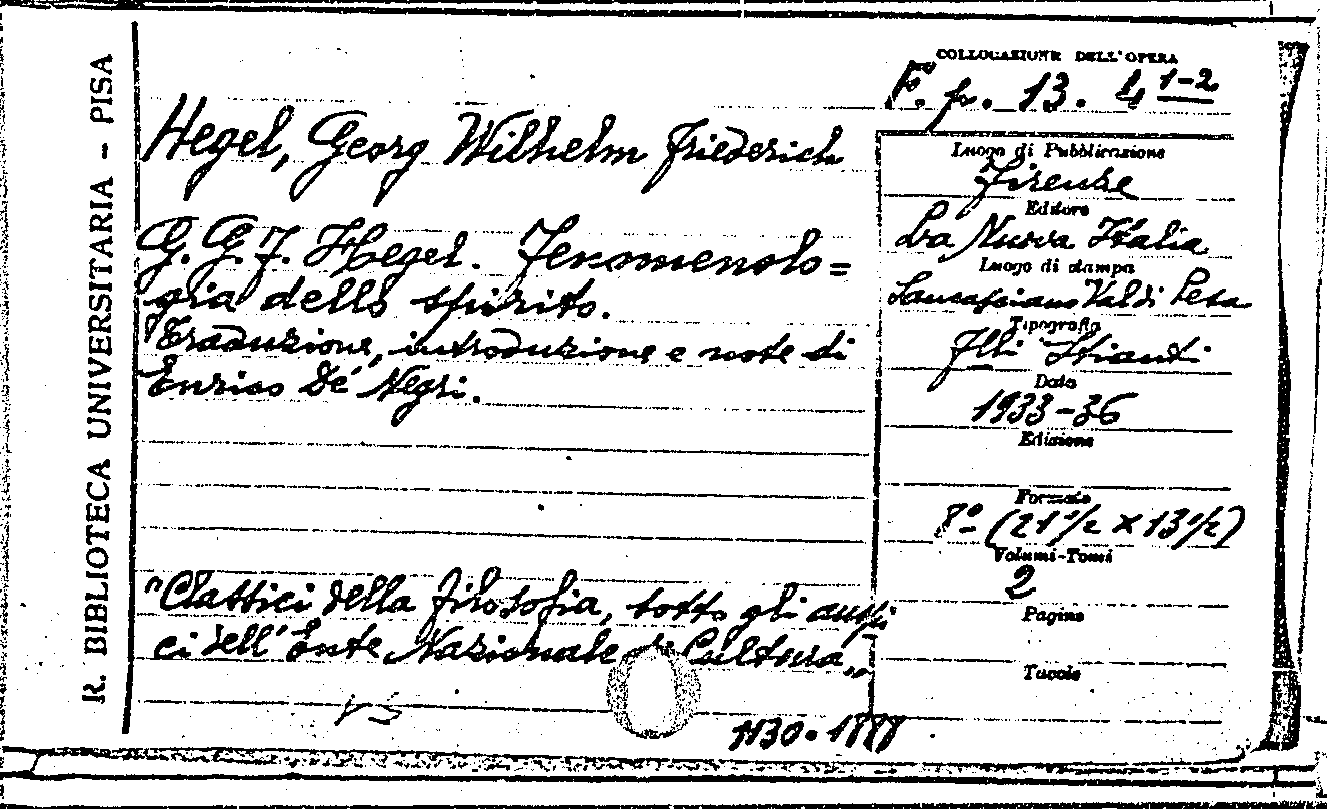 R. BIBLIOTECA UNIVERSITARIA - PISA
COLLOCAZIONE DELL'OPERA
F. fr. 13. 4 1-2
Hegel, Georg Wilhelm Friederich
G. G. F. Hegel. Fenomenolo=
gia dello spirito.
Traduzione, introduzione e note di
Enrico De' Negri.
"Classici della filosofia, sotto gli auspi
ci dell'Ente Nazionale di Cultura,,
Luogo di Pubblicazione
Firenze
Editore
La Nuova Italia
Luogo di stampa
Sancasciano Val di Pesa
Tipografia
F.lli Stianti
Data
1933-36
Edizione
Formato
8º (21 1/2 x 13 1/2)
Volumi-Tomi
2
Pagine
Tavole